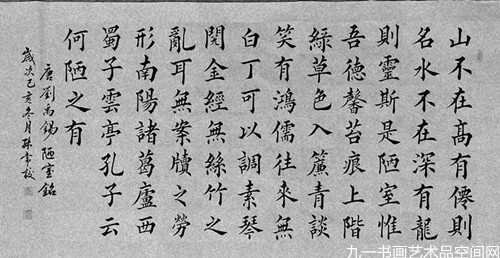 山不在高有僊則
名水不在深有龍
則靈斯是陋室惟
吾德馨苔痕上階
綠草色入簾青談
笑有鴻儒往來無
白丁可以調素琴
閱金經無絲竹之
亂耳無案牘之勞
形南陽諸葛廬西
蜀子雲亭孔子云
何陋之有
唐劉禹錫 陋室銘
歲次己亥冬月
九一书画艺术品空间网